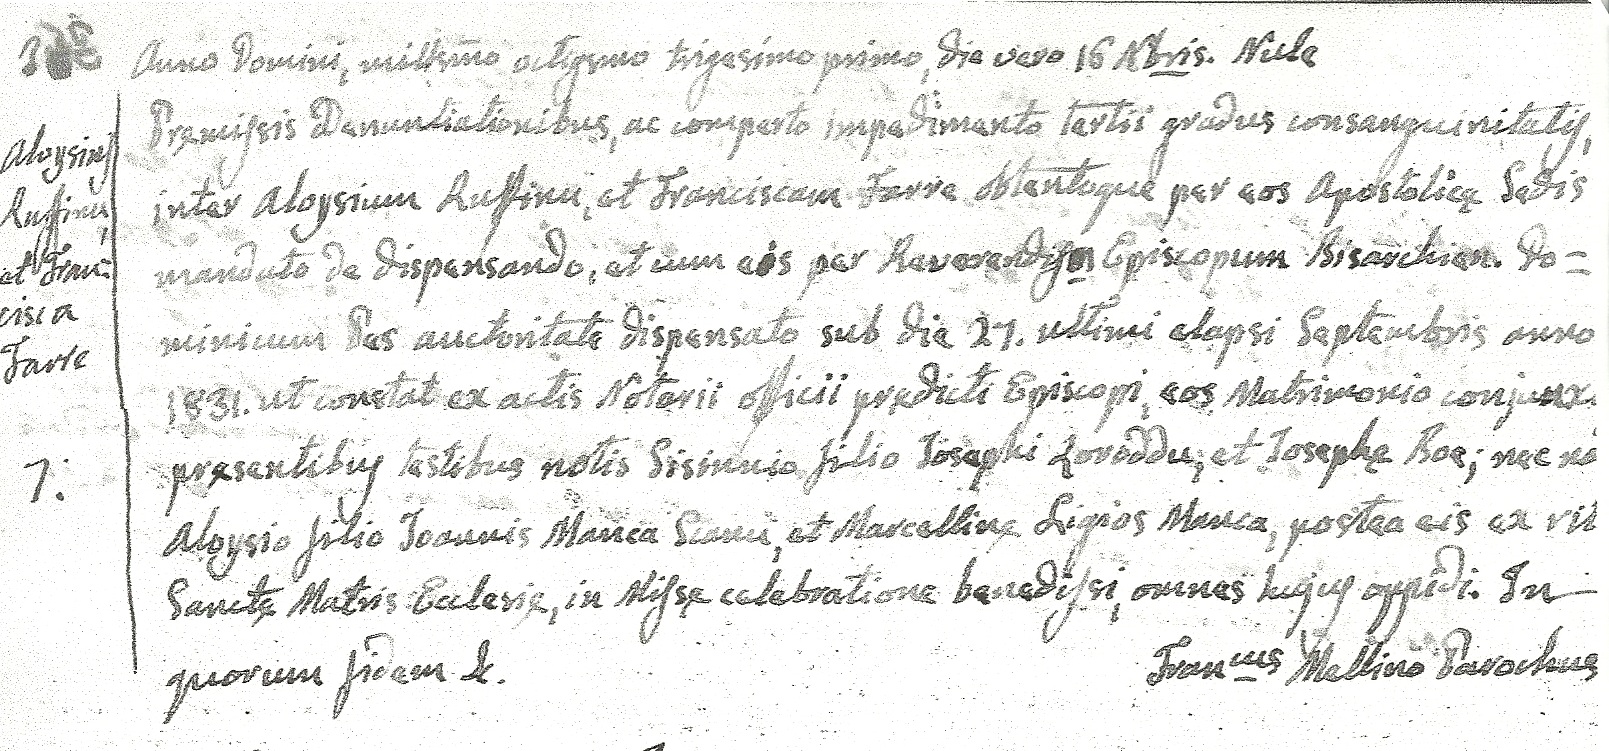 Anno Domini, millsmo octigsmo trigesimo primo, die vero 16 Xbris. Nule
Premissis Denuntiationibus, ac comperto impedimento tertii gradus consanguinitatis,
inter Aloysium Ruffinu, et Franciscam Farre obtentoque per eos Apostolicę Sedis
mandato de dispensando, et cum eis per Reverendissm Episcopum Bisarchien. Do=
minicum Pes auctoritate dispensato sub die 27. ultimi elapsi Septembris anno
1831. ut constat ex actis Notarii officii prędicti Episcopi, eos Matrimonio conjunx.
presentibus testibus notis Sisinnio filio Iosephi Zoroddu, et Iosephę Roe; nec nō
Aloysio filio Ioannis Manca Scanu, et Marcellinę Ligios Manca, postea eis ex rit
Sanctę Matris Ecclesię, in Missę celebratione benedissi, omnes hujus oppidi. In
quorum fidem &.
Francus Mellino Parochus
Aloysius
Ruffinu,
et Fran=
cisca
Farre
7.